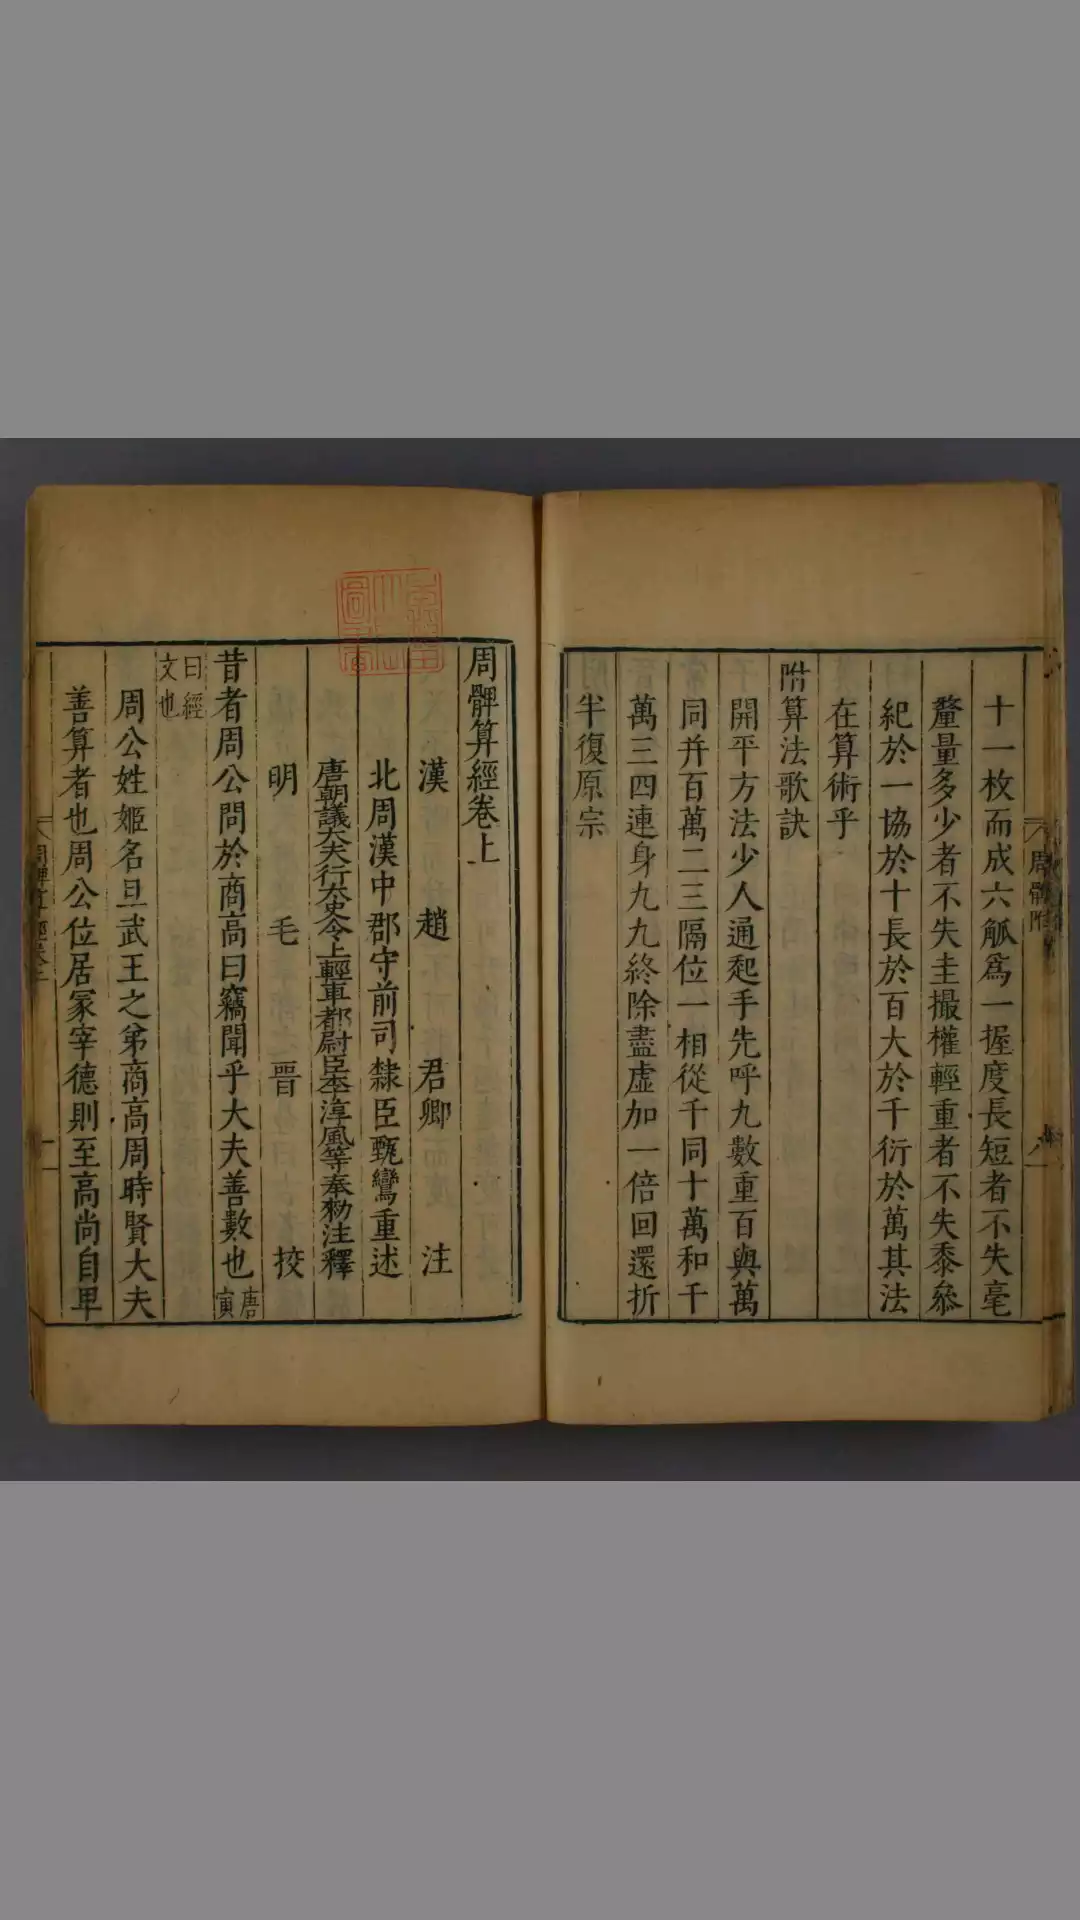 十一枚而成六觚為一握度長短者不失毫
釐量多少者不失圭撮權輕重者不失黍絫
紀於一協於十長於百大於千衍於萬其法
在算術乎
附算法歌訣
開平方法少人通起手先呼九數重百與萬
同并百萬二三隔位一相從千同十萬和千
萬三四連身九九終除盡虛加一倍回還折
半復原宗
周髀附
周髀算經卷上
漢 趙 君卿 注
北周漢中郡守前司隸臣甄鸞重述
唐朝議大夫行太史令上輕車都尉臣李淳風等奉勑注釋
明 毛 晉 挍
昔者周公問於商高曰竊聞乎大夫善數也唐寅
曰經文也
周公姓姬名旦武王之弟商高周時賢大夫
善算者也周公位居冢宰德則至高尚自卑